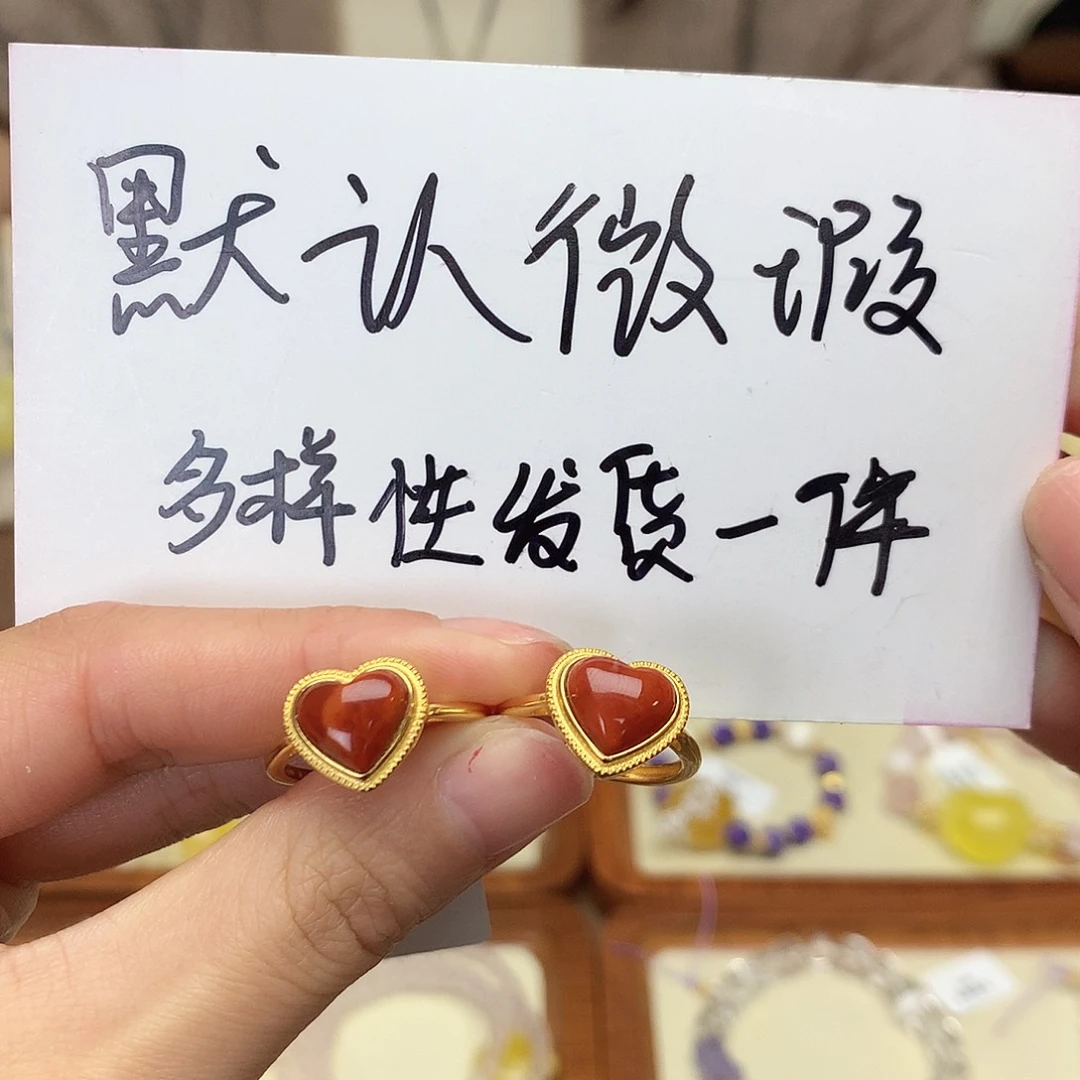 默认微瑕
多样性发货一件